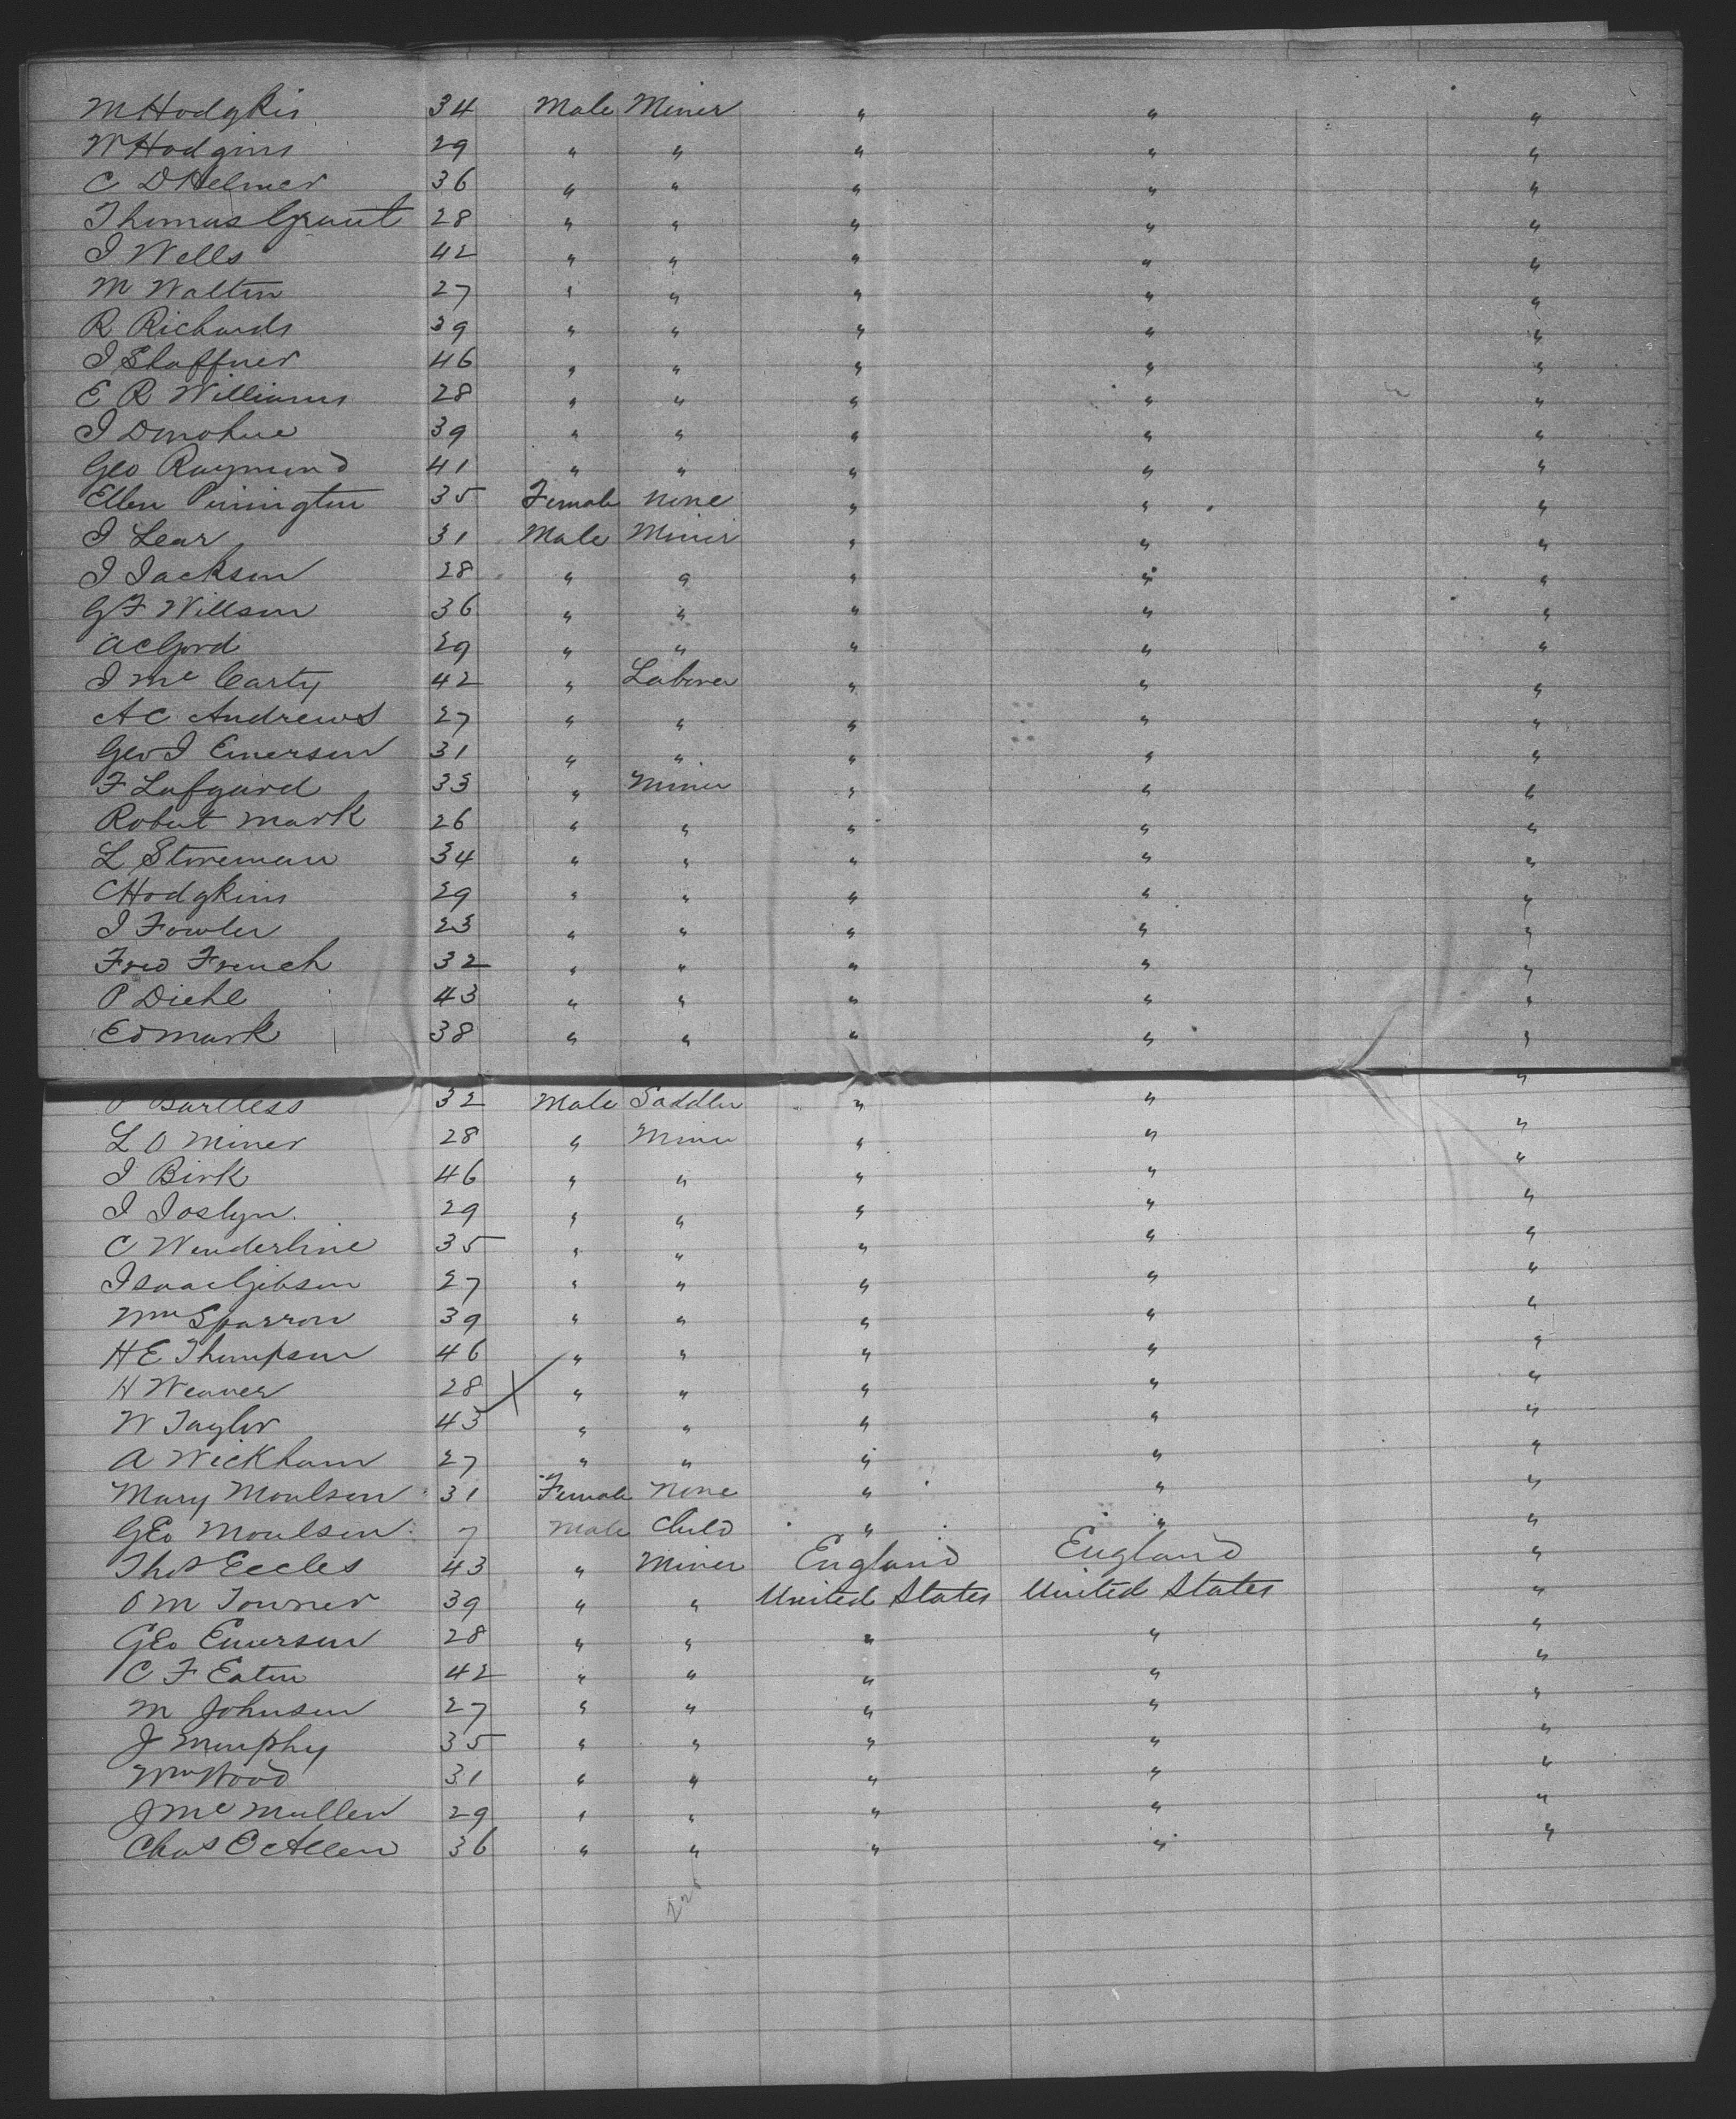 M Hodgkis 34 Male Miner " " "
W Hodgins 29 " " " " "
C D Helmer 36 " " " " "
Thomas Grant 28 " " " " "
I Wells 42 " " " " "
M Walton 27 " " " " "
R Richards 39 " " " " "
I Shaffner 46 " " " " "
E R Williams 28 " " " " "
I Donohue 39 " " " " "
Geo Raymond 41 " " " " "
Ellen Pinington 35 Female none " " "
I Lear 31 Male Miner " " "
I Jackson 28 " " " " "
G F Willson 36 " " " " "
A C Gord 29 " " " " "
I Mc Carty 42 " Laborer " " "
A C Andrews 27 " " " " "
Geo I Emerson 31 " " " " "
F Lafgard 33 " Miner " " "
Robert Mark 26 " " " " "
L Storeman 34 " " " " "
C Hodgkins 29 " " " " "
I Fowler 23 " " " " "
Fred French 32 " " " " "
P Diehl 43 " " " " "
Ed Mark 38 " " " " "
P Bartless 32 Male Saddler " " "
L O Miner 28 " Miner " " "
I Birk 46 " " " " "
I Joslyn 29 " " " " "
C Wenderline 35 " " " " "
Isaac Gibson 27 " " " " "
Wm Sparron 39 " " " " "
H E Thompson 46 " " " " "
H Weaver 28 " " " " "
W Taylor 43 " " " " "
A Wickham 27 " " " " "
Mary Moulson 31 Female None " " "
Geo Moulson 7 Male Child " " "
Thos Eccles 43 " Miner England England "
O M Towner 39 " " United States United States "
Geo Emerson 28 " " " " "
C F Eaton 42 " " " " "
M Johnson 27 " " " " "
J Murphy 35 " " " " "
Wm Wood 31 " " " " "
J Mc Mullen 29 " " " " "
Chas C Allen 36 " " " " "